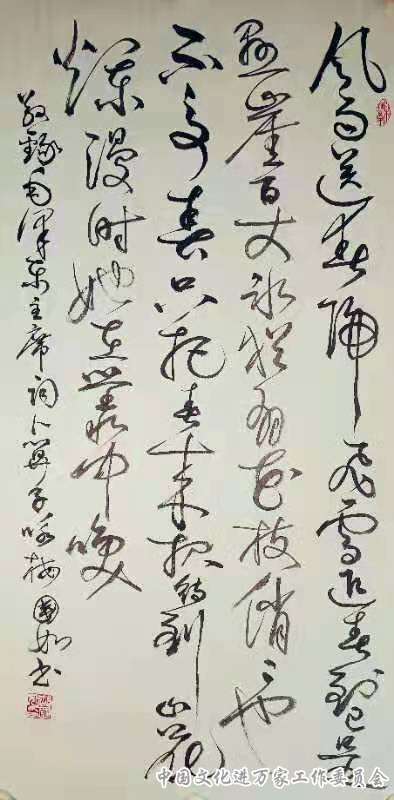 风雨送春归飞雪迎春到已是
悬崖百丈冰犹有花枝俏〻也
不争春只把春来报待到山花
烂漫时她在丛中笑
敬录毛泽东主席词卜算子咏梅 国如书
中国文化进万家工作委员会